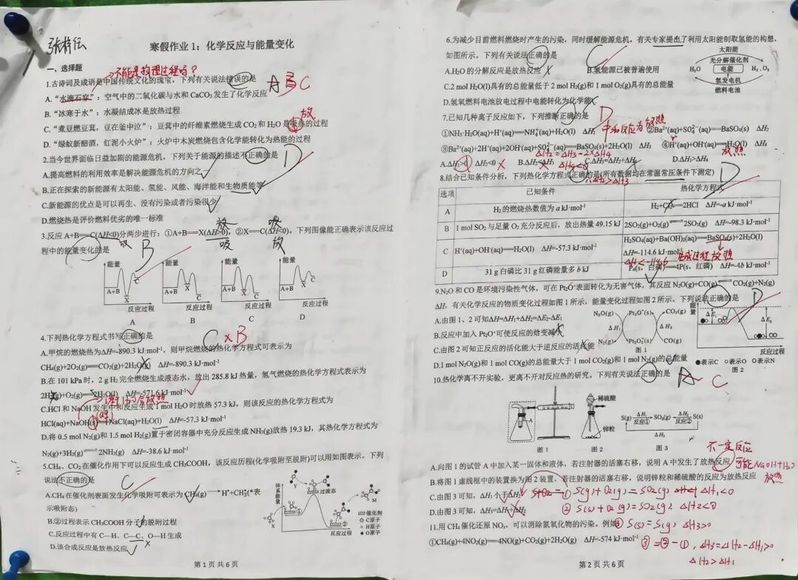 寒假作业 1：化学反应与能量变化
一、选择题
不能是放理过程吗？
1.古诗词及成语是中国传统文化的瑰宝，下列有关说法错误的是
A.“水滴石穿”：空气中的二氧化碳与水和 CaCO₃ 发生了化学反应
B.“冰寒于水”：水凝结成冰是放热过程
放
C.“煮豆燃豆萁，豆在釜中泣”：豆萁中的纤维素燃烧生成 CO2 和 H2O 是 热的过程
D.“绿蚁新醅酒，红泥小火炉”：火炉中木炭燃烧包含化学能转化为热能的过程
2.当今世界面临日益加剧的能源危机，下列关于能源的描述不正确的是
D
A.提高燃料的利用效率是解决能源危机的方向之一
B.正在探索的新能源有太阳能、氢能、风能、海洋能和生物质能等
C.新能源的优点是可以再生、没有污染或者污染很少
D.燃烧热是评价燃料优劣的唯一标准
3.反应 A+B—C(ΔH<0)分两步进行：①A+B—X(ΔH>0)，②X—C(ΔH<0)，下列图像能正确表示该反应过
程中的能量变化的是
B
能量
A+B
X
C
反应过程
A
B
C
D
4.下列热化学方程式书写正确的是
C×B
A.甲烷的燃烧热为ΔH=-890.3 kJ·mol⁻¹，则甲烷燃烧的热化学方程式可表示为
CH₄(g)+2O₂(g)══CO₂(g)+2H₂O ΔH=-890.3 kJ·mol⁻¹
B.在 101 kPa 时，2 g H₂ 完全燃烧生成液态水，放出 285.8 kJ 热量，氢气燃烧的热化学方程式表示为
ΔH=-571.6 kJ·mol⁻¹
C.HCl 和 NaOH 发生中和反应生成 1 mol H₂O 时放热 57.3 kJ，则该反应的热化学方程式为
HCl(aq)+NaOH ══NaCl(aq)+H₂O(l) ΔH=-57.3 kJ·mol⁻¹
D.将 0.5 mol N₂(g)和 1.5 mol H₂(g)置于密闭容器中充分反应生成 NH₃(g)放热 19.3 kJ，其热化学方程式为
N₂(g)+3H₂(g) 2NH₃(g) ΔH=-38.6 kJ·mol⁻¹
5.CH₄、CO₂ 在催化作用下可以反应生成 CH₃COOH，该反应历程(化学吸附至脱附)可以用如图表示，下列
说法不正确的是
C
A.CH₄ 在催化剂表面发生化学吸附可表示为 CH₄(g)→H*+CH₃*(*表
示吸附态)
B.②过程表示 CH₃COOH 分子的脱附过程
C.反应过程中有 C—H、C—C、O—H 生成
D.该合成反应是放热反应
过渡态
催化剂
C原子
H原子
O原子
反应过程
第 1 页 共 6 页
6.为减少目前燃料燃烧时产生的污染，同时缓解能源危机，有关专家提出了利用太阳能制取氢能的构想。
如图所示，下列有关说法正确的是
C
太阳能
光分解催化剂
H₂O
电能
H₂、O₂
氢发电机
燃料电池
A.H₂O 的分解反应是放热反应
B.氢能源已被普遍使用
C.2 mol H₂O(l)具有的总能量低于 2 mol H₂(g)和 1 mol O₂(g)具有的总能量
D.氢氧燃料电池放电过程中电能转化为化学能
7.已知几种离子反应如下，下列推断正确的是
D
中和反应为放热
①NH₃·H₂O(aq)+H⁺(aq)══NH₄⁺(aq)+H₂O(l) ΔH₁ ②Ba²⁺(aq)+SO₄²⁻(aq)══BaSO₄(s) ΔH₂
③Ba²⁺(aq)+2H⁺(aq)+2OH⁻(aq)+SO₄²⁻(aq)══BaSO₄(s)+2H₂O(l) ΔH₃ ④H⁺(aq)+OH⁻(aq)══H₂O(l) ΔH₄
放热
D.ΔH₁>ΔH₄
8.结合已知条件分析，下列热化学方程式正确的是(所有数据均在常温常压条件下测定)
D
选项 已知条件 热化学方程式
A H₂ 的燃烧热数值为 a kJ·mol⁻¹ ΔH=-a kJ·mol⁻¹
B 1 mol SO₂ 与足量 O₂ 充分反应后，放出热量 49.15 kJ 2SO₂(g)+O₂(g) 2SO₃(g) ΔH=-98.3 kJ·mol⁻¹
C H⁺(aq)+OH⁻(aq)══H₂O(l) ΔH=-57.3 kJ·mol⁻¹ H₂SO₄(aq)+Ba(OH)₂(aq)══BaSO₄(s)+2H₂O(l)
ΔH=-114.6 kJ·mol⁻¹
ΔH<-114.6
D 31 g 白磷比 31 g 红磷能量多 b kJ P₄(s，白磷)══4P(s，红磷) ΔH=-4b kJ·mol⁻¹
9.N₂O 和 CO 是环境污染性气体，可在 Pt₂O⁺表面转化为无害气体，其反应 N₂O(g)+CO(g)══CO₂(g)+N₂(g)
ΔH，有关化学反应的物质变化过程如图 1 所示，能量变化过程如图 2 所示，下列说法正确的是
D
A.由图 1、2 可知ΔH=ΔH₁+ΔH₂=ΔE₂-ΔE₁
B.反应中加入 Pt₂O⁺可使反应的焓变减小
C.由图 2 可知正反应的活化能大于逆反应的活化能
D.1 mol N₂O(g)和 1 mol CO(g)的总能量大于 1 mol CO₂(g)和 1 mol N₂(g)的总能量
N₂O(g)
Pt₂O⁺(s)
CO₂(g)
ΔH₁
ΔH₂
N₂(g)
Pt₂O₂⁺(s)
CO(g)
图 1
能量
ΔE₁
ΔE₂
反应过程
●表示C ○表示O ◎表示N
图 2
10.热化学离不开实验，更离不开对反应热的研究，下列有关说法正确的是
A
C
A
图 1
稀硫酸
锌粒
图 2
S(g)
反应①
SO₂(g)
反应②
S(s)
ΔH₃
图 3
不一定反应
A.向图 1 的试管 A 中加入某一固体和液体，若注射器的活塞右移，说明 A 中发生了放热反应
可能NaOH+H₂O
放热
B.将图 1 虚线框中的装置换为图 2 装置，若注射器的活塞右移，说明锌粒和稀硫酸的反应为放热反应
① S(g)+O₂(g)=SO₂(g) ΔH₁<0
② S(s)+O₂(g)=SO₂(g) ΔH₂<0
③ S(s)=S(g) ΔH₃>0
11.用 CH₄ 催化还原 NOₓ，可以消除氮氧化物的污染，例如
③=②-①
①CH₄(g)+4NO₂(g)══4NO(g)+CO₂(g)+2H₂O(g) ΔH=-574 kJ·mol⁻¹
ΔH₂>ΔH₁
第 2 页 共 6 页